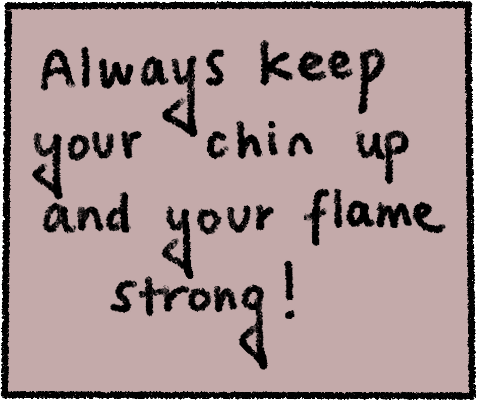 Always keep
your chin up
and your flame
strong!